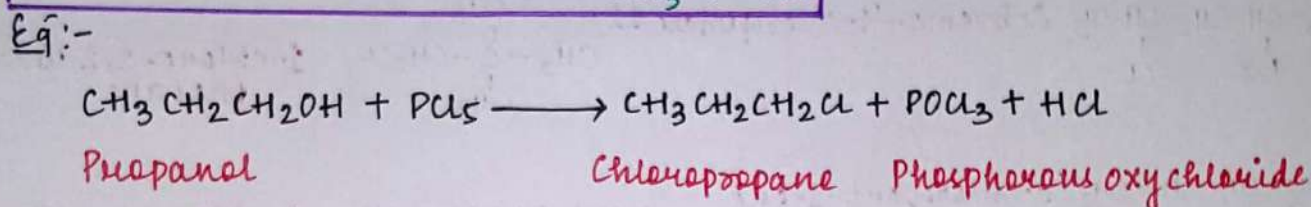 Eg:-
CH3 CH2 CH2OH + PCl5 ⟶ CH3CH2CH2Cl + POCl3 + HCl
Propanol Chloropropane Phosphorous oxychloride